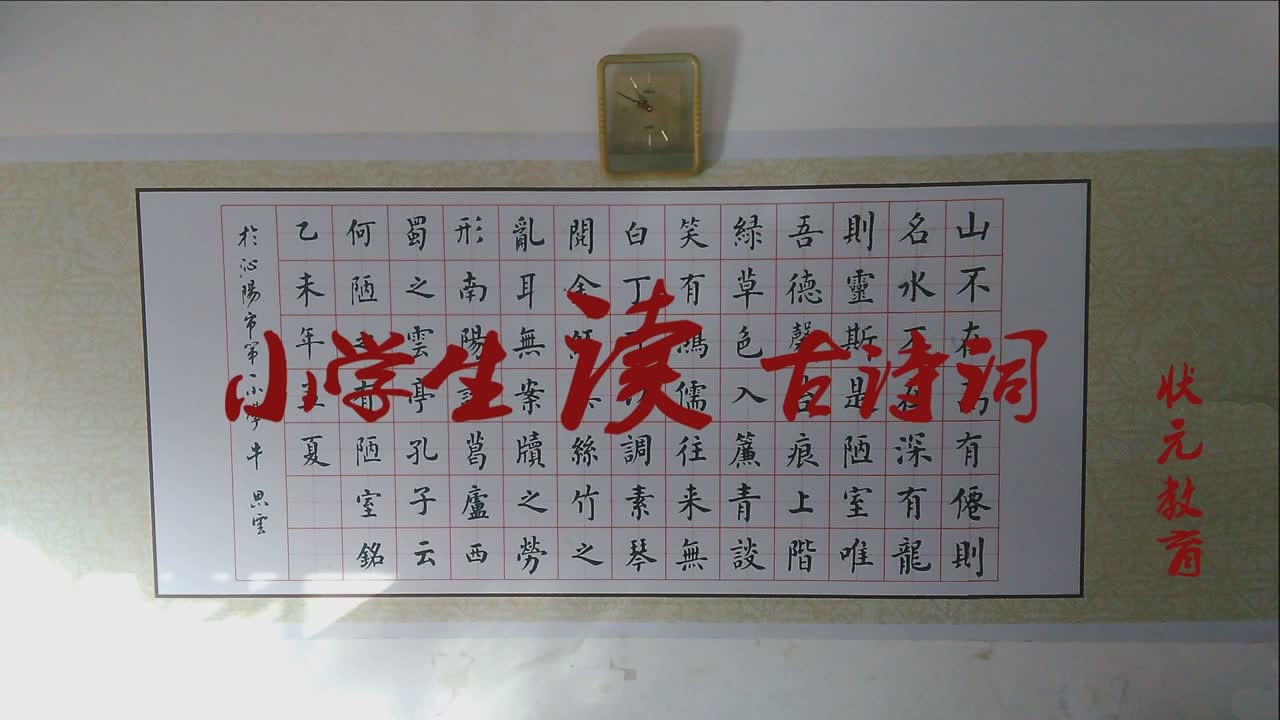 小学生读古诗词
状元教育
山不在高有僊則
名水不在深有龍
則靈斯是陋室唯
吾德馨苔痕上階
綠草色入簾青談
笑有鴻儒往来無
白丁可以調素琴
閱金經無絲竹之
亂耳無案牘之勞
形南陽諸葛廬西
蜀之雲亭孔子云
何陋之有陋室銘
乙未年夏
於沁陽市第一小學牛思雲